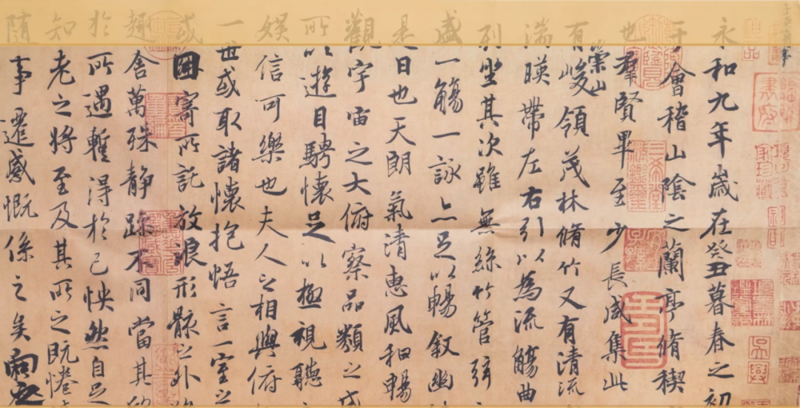 永和九年歲在癸丑暮春之初
于會稽山陰之蘭亭脩稧
也群賢畢至少長咸集此
有崇山峻領茂林脩竹又有清流
湍暎帶左右引以為流觴曲
列坐其次雖無絲竹管弦
盛一觴一詠亦足以暢敘幽
是日也天朗氣清惠風和暢
觀宇宙之大俯察品類之盛
所以遊目騁懷足以極視聽
娛信可樂也夫人之相與俯
一世或取諸懷抱悟言一室之
或因寄所託放浪形骸之外
趣舍萬殊靜躁不同當其
於所遇暫得於己怏然自足
知老之將至及其所之既惓
隨事遷感慨係之矣向之